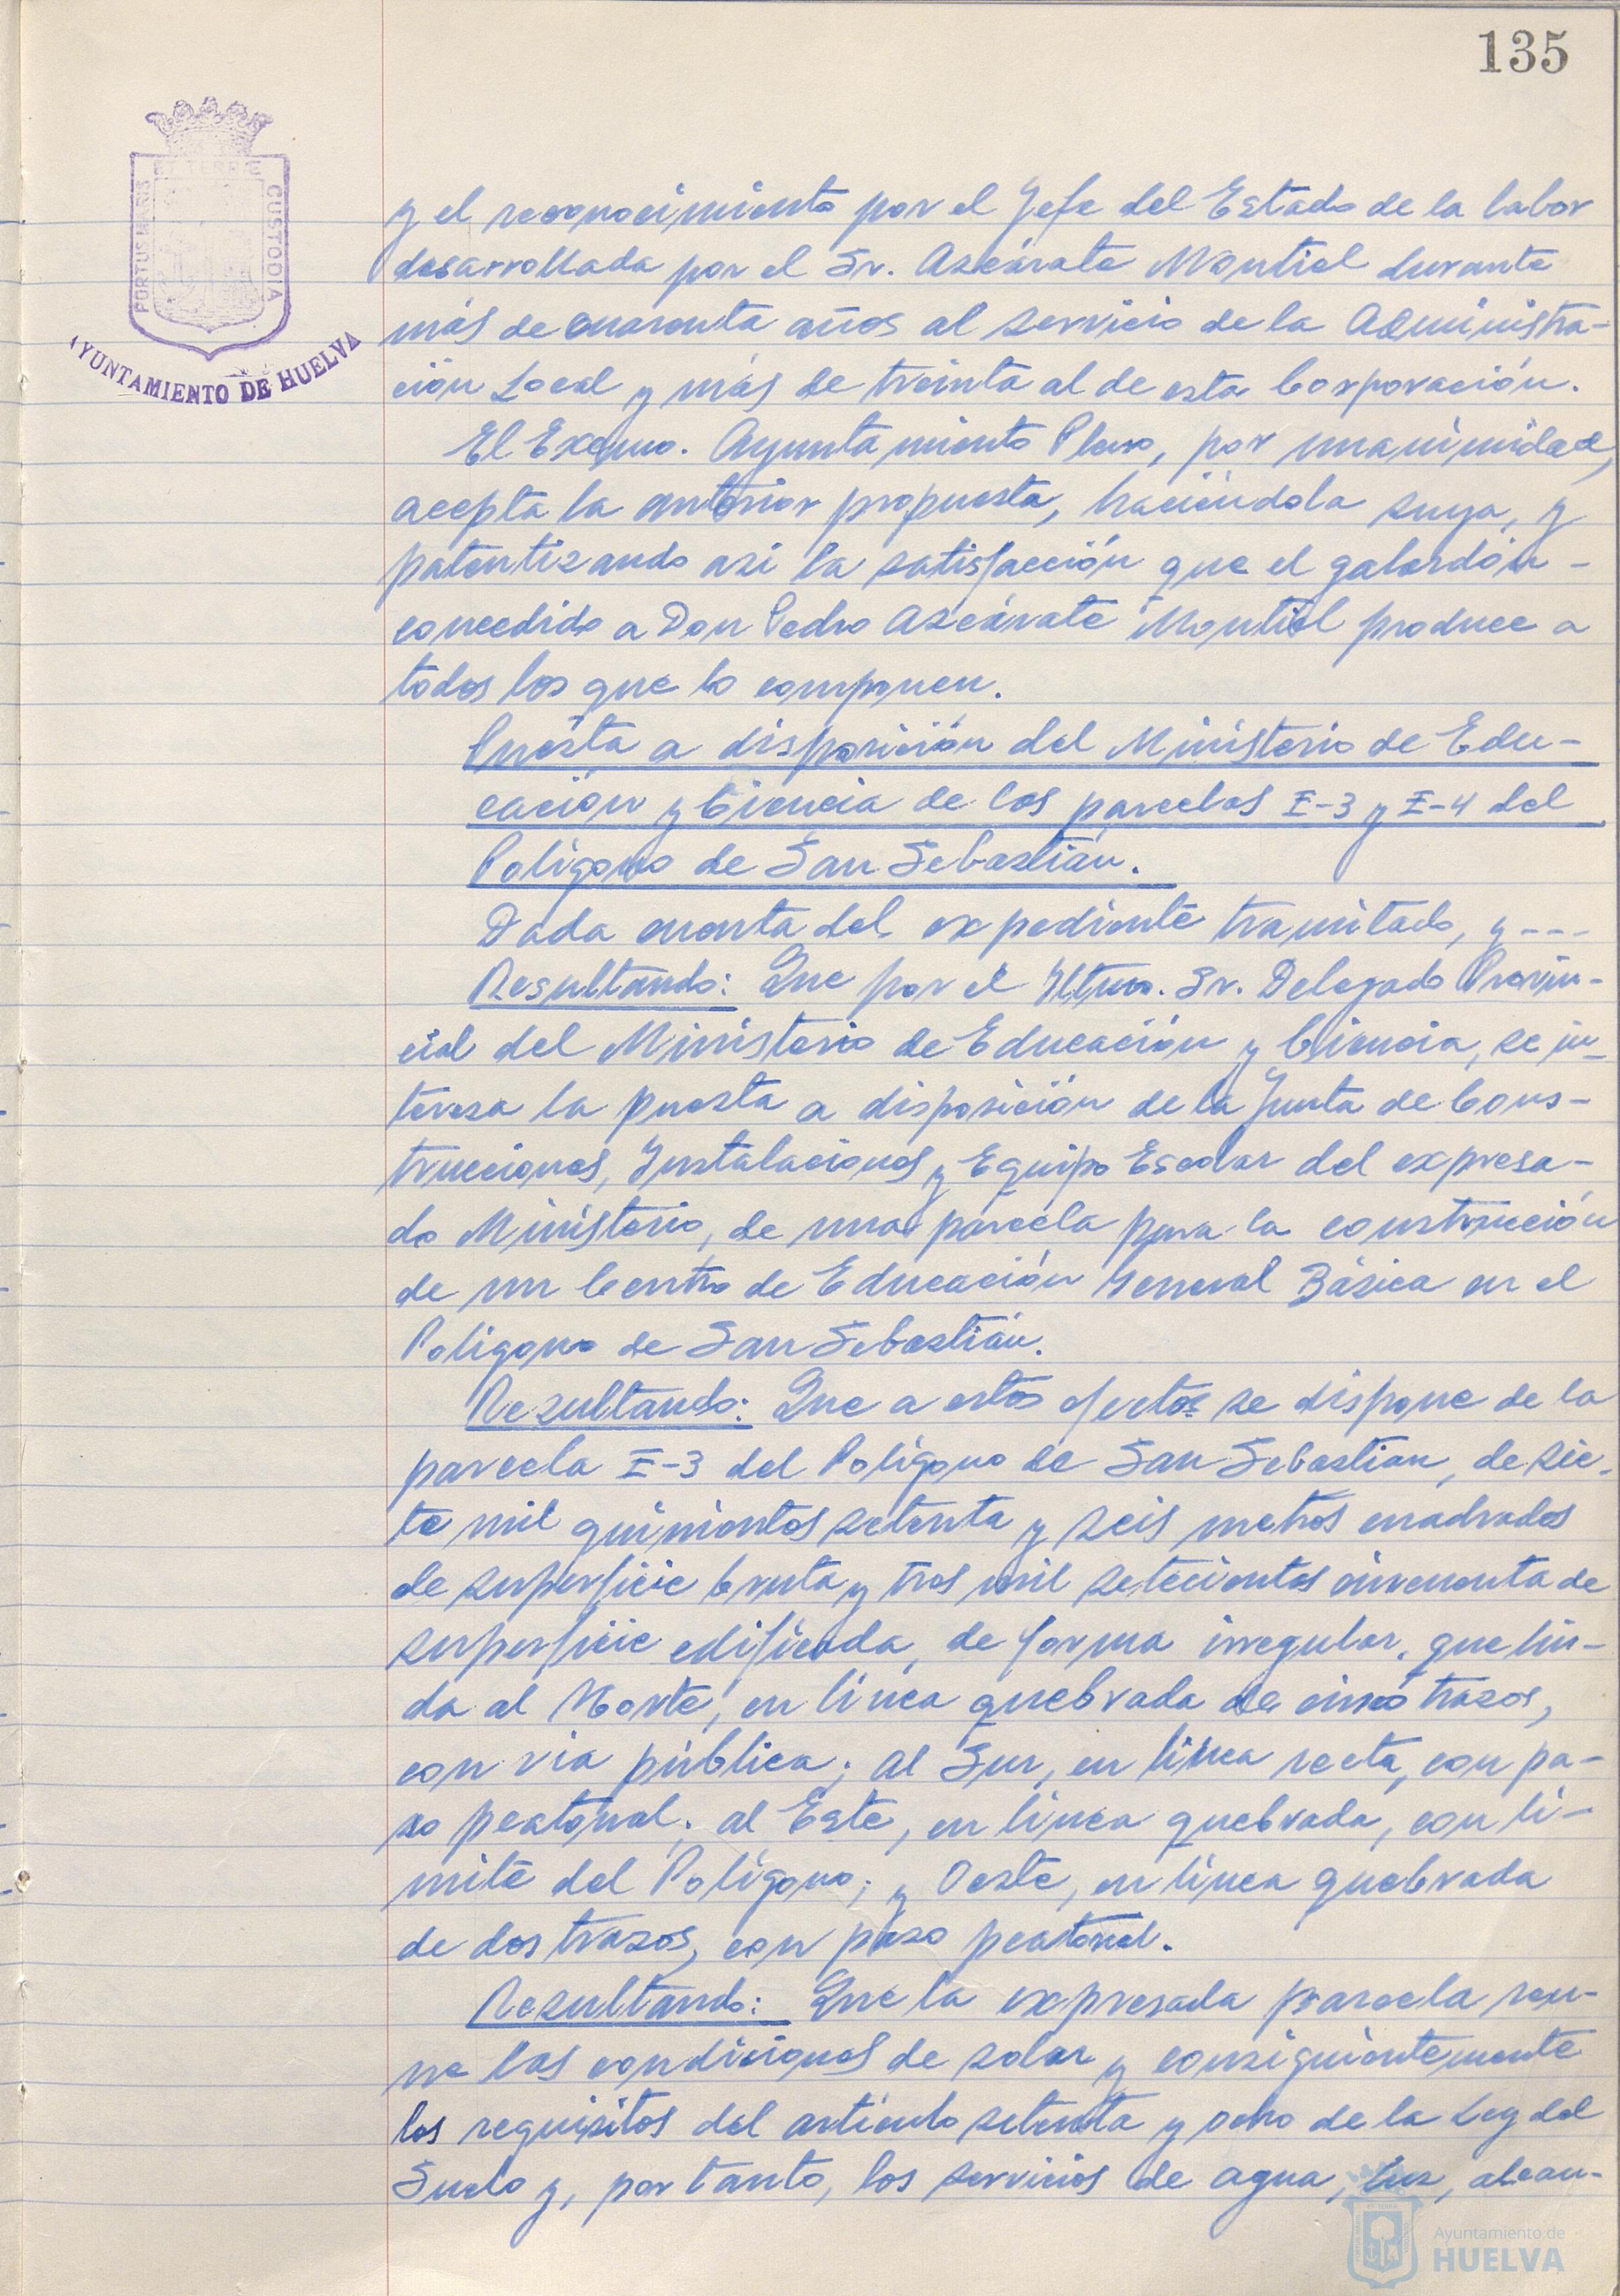 135
PORTUS MARIS
ET TERRE
CUSTODIA
AYUNTAMIENTO DE HUELVA
y el reconocimiento por el Jefe del Estado de la labor
desarrollada por el Sr. Azcárate Montiel durante
más de cuarenta años al servicio de la Administra-
ción Local y más de treinta al de esta Corporación.
El Excmo. Ayuntamiento Pleno, por unanimidad,
acepta la anterior propuesta, haciéndola suya, y
patentizando asi la satisfacción que el galardón -
concedido a Don Pedro Azcárate Montiel produce a
todos los que lo componen.
Puesta a disposición del Ministerio de Edu-
cación y Ciencia de las parcelas E-3 y E-4 del
Polígono de San Sebastián.
Dada cuenta del expediente tramitado, y ---
Resultando: Que por el Iltmo. Sr. Delegado Provin-
cial del Ministerio de Educación y Ciencia, se in-
teresa la puesta a disposición de la Junta de Cons-
trucciones, Instalaciones y Equipo Escolar del expresa-
do Ministerio, de una parcela para la construcción
de un Centro de Educación General Básica en el
Polígono de San Sebastián.
Resultando: Que a estos efectos se dispone de la
parcela E-3 del Polígono de San Sebastián, de sie-
te mil quinientos setenta y seis metros cuadrados
de superficie bruta y tres mil setecientos cincuenta de
superficie edificada, de forma irregular, que lin-
da al Norte, en línea quebrada de cinco trazos,
con vía pública; al Sur, en línea recta, con pa-
so peatonal; al Este, en línea quebrada, con lí-
mite del Polígono; y Oeste, en línea quebrada
de dos trazos, con paso peatonal.
Resultando: Que la expresada parcela reu-
ne las condiciones de solar y consiguientemente
los requisitos del artículo setenta y ocho de la Ley del
Suelo y, por tanto, los servicios de agua, luz, alcan-
Ayuntamiento de
HUELVA